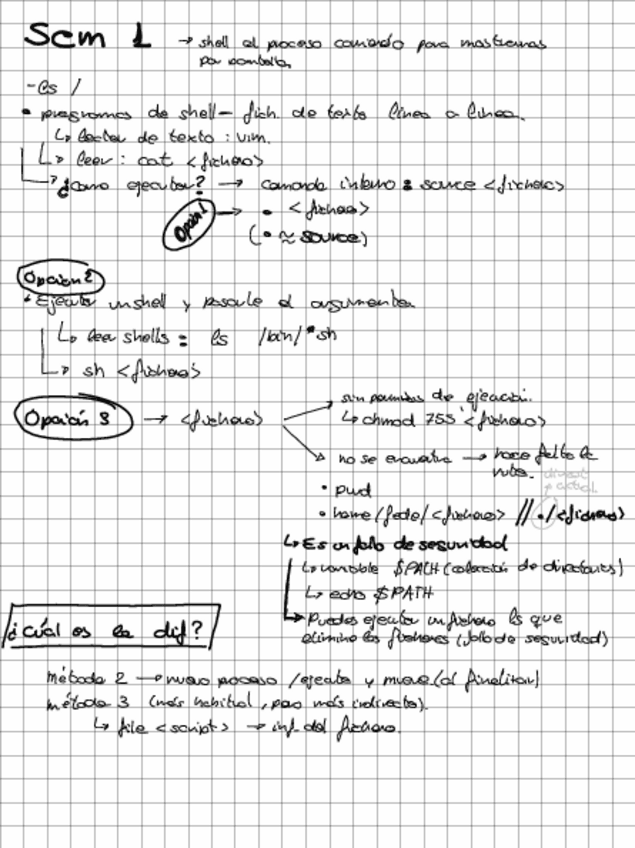 Sem 1 → shell el proceso comando para mostrarnos
por pantalla.
- ls /
• programas de shell - fich. de texto línea a línea.
↳ lector de texto : vim.
↳ leer : cat <fichero>
↳ ¿Como ejecutar? → comando interno : source <fichero>
Opción 1 → • <fichero>
(• ≈ source)
Opción 2
• Ejecutar un shell y pasarle el argumento
↳ leer shells : ls /bin/*sh
↳ sh <fichero>
Opción 3 → <fichero>
sin permisos de ejecución.
↳ chmod 755 <fichero>
no se encuentra → hace falta la
ruta.
• pwd
• home/fede/<fichero> // ./<fichero>
direct
actual.
↳ Es un fallo de seguridad
↳ variable $PATH (colección de directorios)
↳ echo $PATH
↳ Puedes ejecutar un fichero ls que
elimine los ficheros (fallo de seguridad)
¿Cúal es la dif?
método 2 → nuevo proceso /ejecuta y muere (al finalizar)
método 3 (más habitual, pero más indirecta).
↳ file <script> → inf. del fichero.